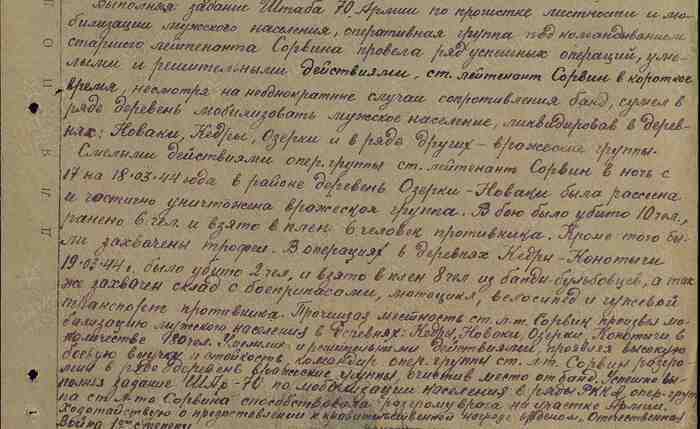 Выполняя задание Штаба 70 Армии по прочистке местности и мо-
билизации мужского населения, оперативная группа под командованием
старшего лейтенанта Сорвина провела ряд успешных операций, уме-
лыми и решительными действиями, ст. лейтенант Сорвин в короткое
время, несмотря на неоднократные случаи сопротивления банд, сумел в
ряде деревень мобилизовать мужское население, ликвидировав в дерев-
нях: Новаки, Кедры, Озерки и в ряде других – вражеские группы.
Смелыми действиями опер. группы ст. лейтенант Сорвин в ночь с
17 на 18.03.44 года в районе деревень Озерки – Новаки была рассеяна
и частично уничтожена вражеская группа. В бою было убито 10 чел,
ранено 6 чел. и взято в плен 6 человек противника. Кроме того бы-
ли захвачены трофеи. В операциях в деревнях Кедры – Конотычи
19.03.44 г. было убито 2 чел, и взято в плен 8 чел из банды-бульбовцев, а так
же захвачен склад с боеприпасами, мотоцикл, велосипед и гужевой
транспорт противника. Прочищая местность ст. л-т. Сорвин произвел мо-
билизацию мужского населения в деревнях: Кедры, Новаки, Озерки, Конотычи в
количестве чел. Смелыми и решительными действиями, проявив высокую
боевую выучку и стойкость, командир опер. группы ст. л-т. Сорвин разгро-
мил в ряде деревень вражеские группы, очистив место от банд. Успешно вы-
полняя задание Штаб-70 по мобилизации населения в ряды РККА, опер-груп-
па ст. л-та Сорвина способствовала разгрому врага на участке Армии.
Ходатайствую о предоставлении к правительственной награде орденом „Отечественная
Война 1ой степени
Д Л Я П О Д